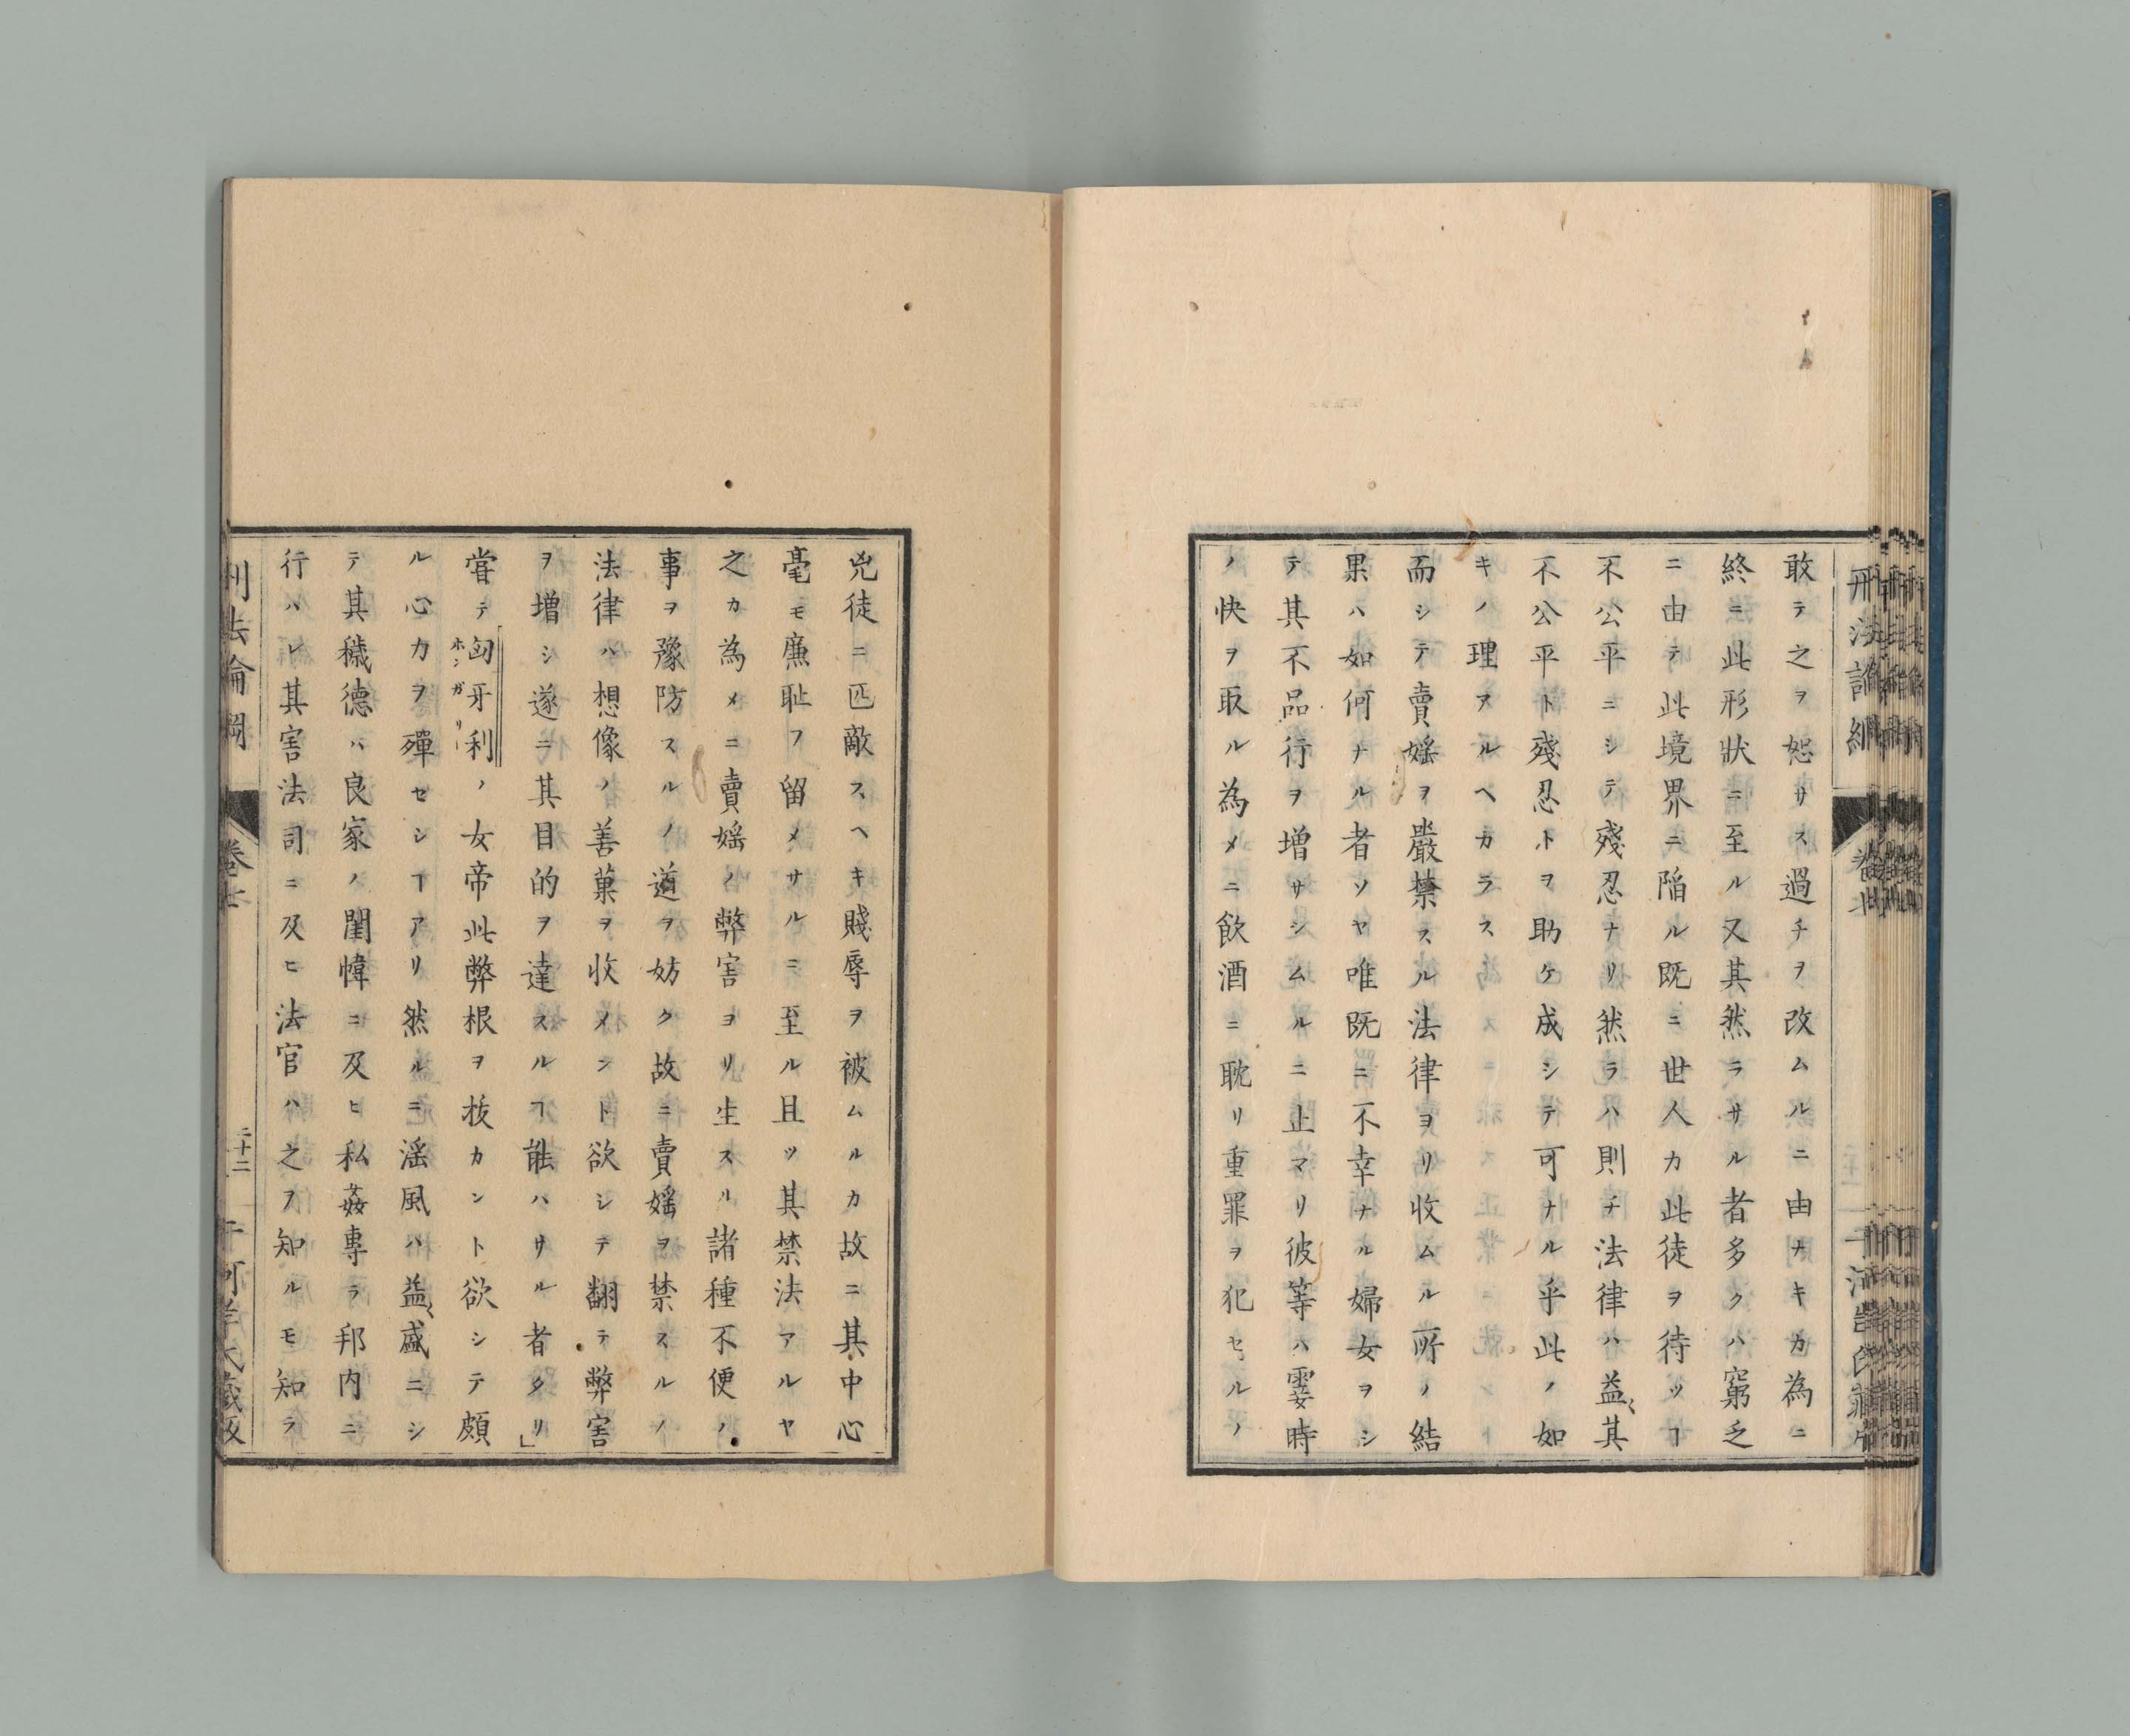 敢テ之ヲ恕サス過チヲ改ムルニ由ナキカ為ニ
終ニ此形狀ニ至ル又其然ラサル者多クハ窮乏
ニ由テ此境界ニ陷ル既ニ世人カ此徒ヲ待ツヿ
不公平ニシテ殘忍ナリ然ラハ則チ法律ハ益〻其
不公平ト殘忍トヲ助ケ成シテ可ナル乎此ノ如
キノ理アルヘカラス
而シテ賣婬ヲ嚴禁スル法律ヨリ收ムル所ノ結
果ハ如何ナル者ソヤ唯既ニ不幸ナル婦女ヲシ
テ其不品行ヲ增サシムルニ止マリ彼等ハ霎時
ノ快ヲ取ル為メニ飲酒ニ耽リ重罪ヲ犯セルノ
兇徒ニ匹敵スヘキ賤辱ヲ被ムルカ故ニ其中心
毫モ廉耻フ留メサルニ至ル且ツ其禁法アルヤ
之カ為メニ賣婬ノ弊害ヨリ生スル諸種不便ノ
事ヲ豫防スルノ道ヲ妨ク故ニ賣婬ヲ禁スルノ
法律ハ想像ノ善菓ヲ收メント欲シテ翻テ弊害
ヲ增シ遂ニ其目的ヲ達スルヿ能ハサル者タリ」
嘗テ匈牙利ノ女帝此弊根ヲ拔カント欲シテ頗
ホンガリー
ル心力ヲ殫セシヿアリ然ルニ滛風ハ益〻盛ニシ
テ其穢德ハ良家ノ閨幃ニ及ヒ私姦專ラ邦内ニ
行ハレ其害法司ニ及ヒ法官ハ之ヲ知ルモ知ラ
刑法論綱
卷七
二十二
何羊氏藏版